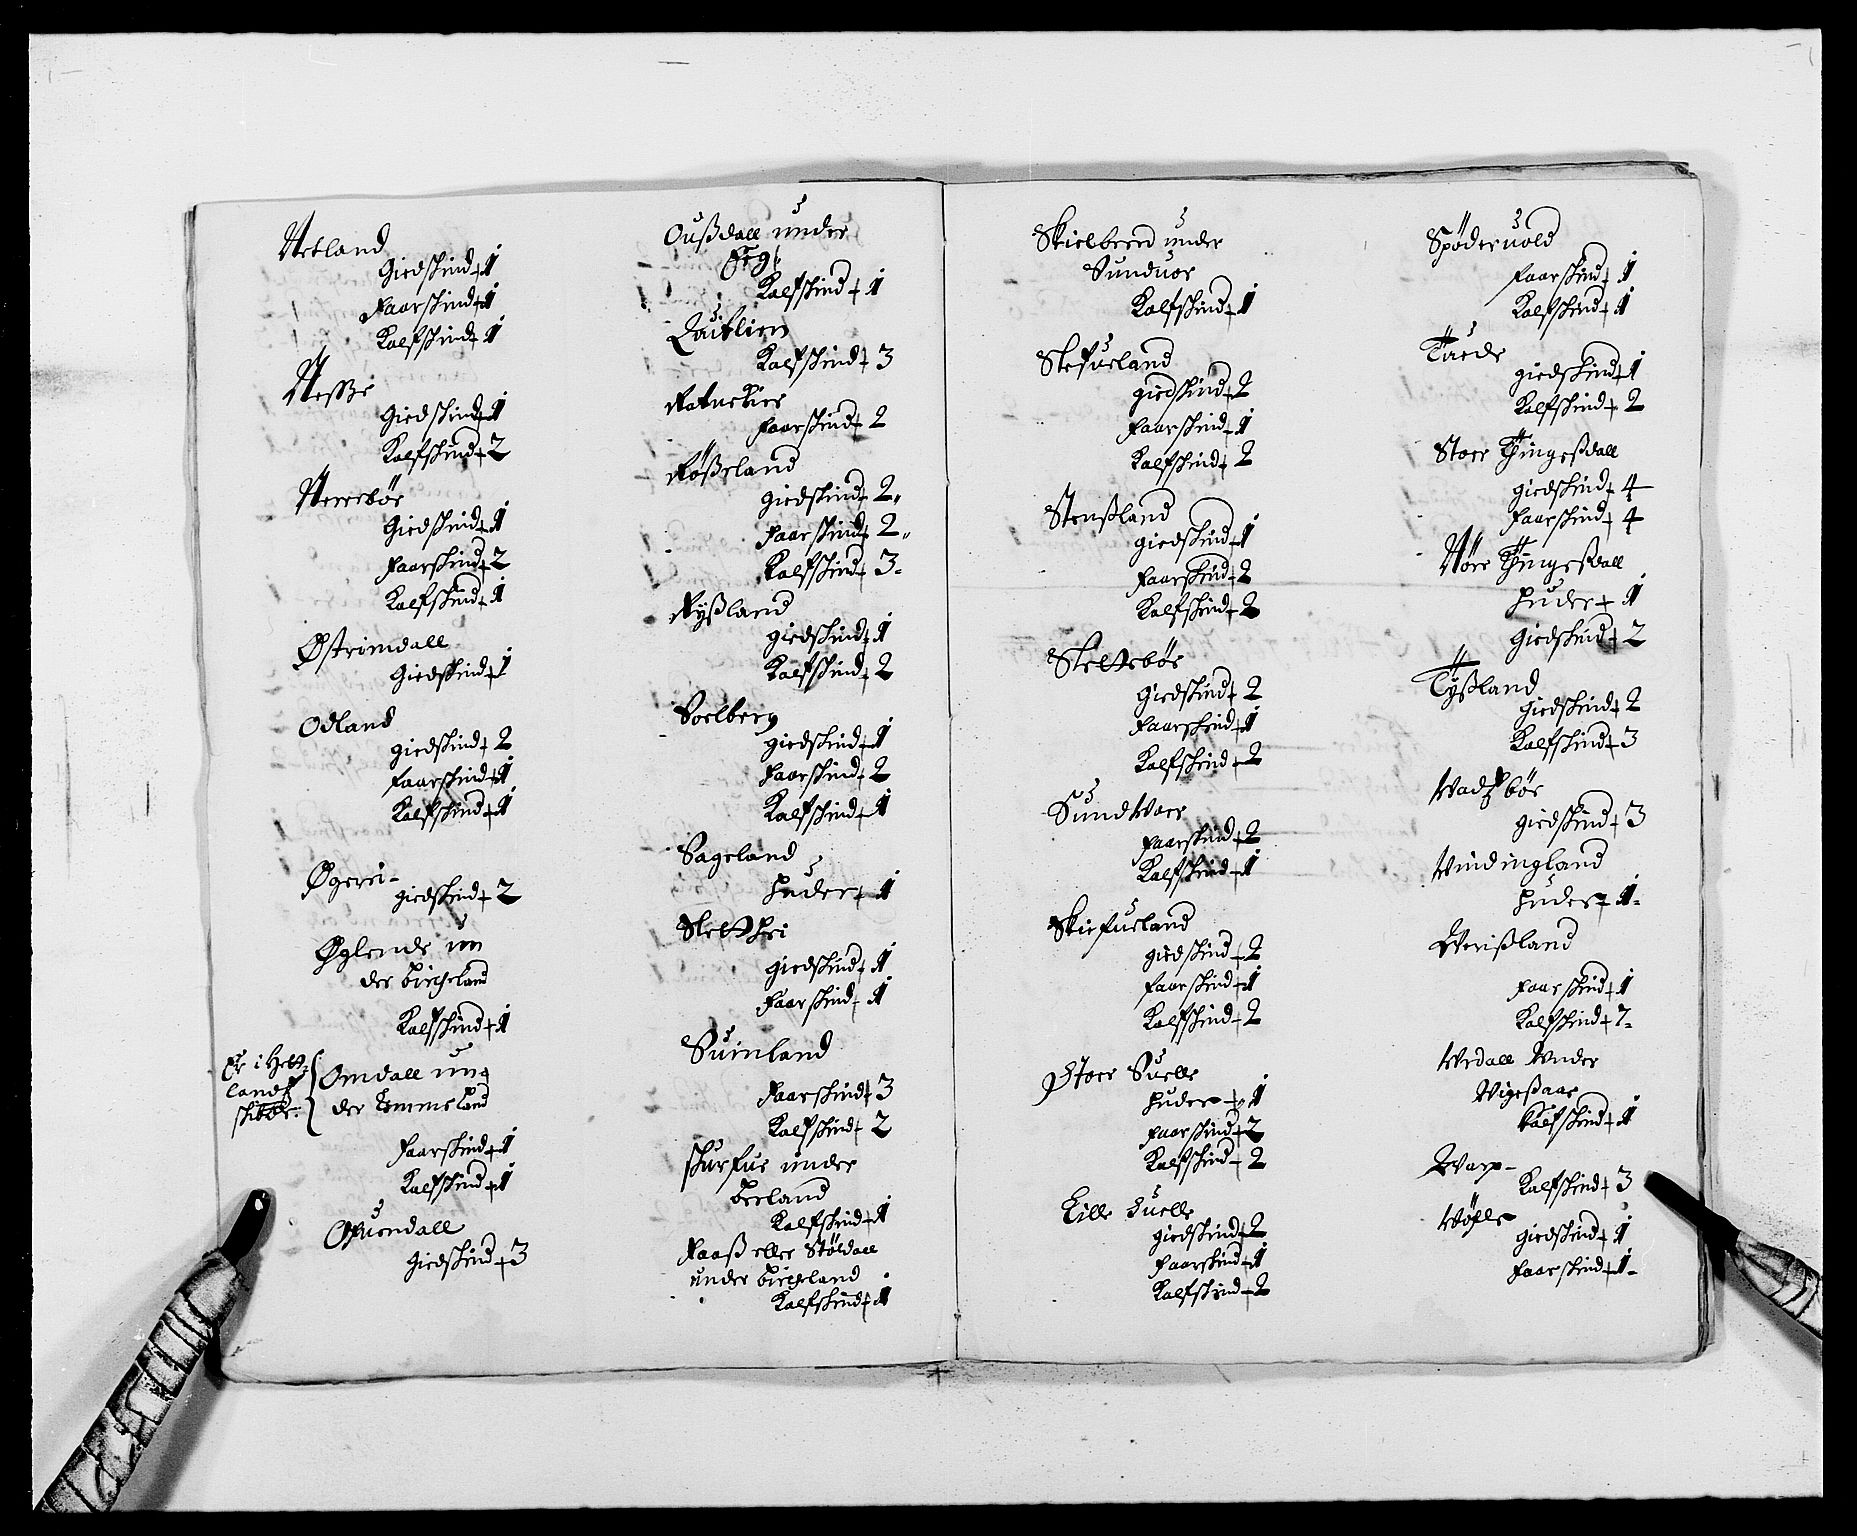 Netland
Giedskind + 1
Faarskind + 1
Kalfskind + 1
Nesse
Giedskind + 1
Kalfskind + 2
Nerrebøe
Giedskind + 1
Faarskind + 2
Kalfskind + 1
Østrimdall
Giedskind + 1
Odland
giedskind + 2
faarskind + 1
Kalfskind + 1
Øgrei -
giedskind + 2
Øglende un
der Birckeland
Kalfskind + 1
Er i Hett
landtz
skibbr:
Omdall un=
der Tomesland
Faarskind + 1
Kalfskind + 1
Ofuendall
Giedskind + 3
Oußdall under
Kalfskind + 1
Quitlien
Kalfskind + 3
faarskind + 2
Røßeland
giedskind + 2 "
Faarskind + 2 "
Kalfskind + 3 -
Rysland
giedskind + 1
Kalfskind + 2
Soelberg
giedskind + 1
Faarskind + 2
Kalfskind + 1
Sageland
Huder + 1
Sletthei
giedskind + 1
Faarskind + 1
Suinland
Faarskind + 3
Kalfskind + 2
skurfue under
Berland
Kalfskind + 1
Raaß eller Støldall
under Birckeland
Kalfskind + 1
Skielbred under
Sunduor
Kalfskind + 1
Skefueland
giedskind + 2
Faarskind + 1
Kalfskind + 2
Stenßland
giedskind + 1
Faarskind + 2
Kalfskind + 2
Slettebøe
Giedskind + 2
Faarskind + 1
Kalfskind + 2
Sundwoer
Faarskind + 2
Kalfskind + 1
Skiefueland
giedskind + 2
faarskind + 1
Kalfskind - 2
Stoer Suelle
Huder + 1
Faarskind + 2
Kalfskind - 2
Lille Suelle
Giedskind + 2
Faarskind + 1
Kalfskind - 2
Spøderuold
Faarskind + 1
Kalfskind + 1
Tuede
giedskind + 1
Kalfskind + 2
Stoer Thingeßdall
giedskind + 4
Faarskind + 4
Nørr Thingeßdall
Huder + 1
Giedskind + 2
Tyßland
giedskind + 2
Kalfskind + 3
Wadtzbøe
giedskind + 3
Windingland
Huder + 1 -
Werißland
Faarskind + 1
Kalfskind + 2 -
Wrdall Under
Kalfskind + 1
Warp -
Kalfskind + 3
Giedskind + 1
Faarskind + 1 -